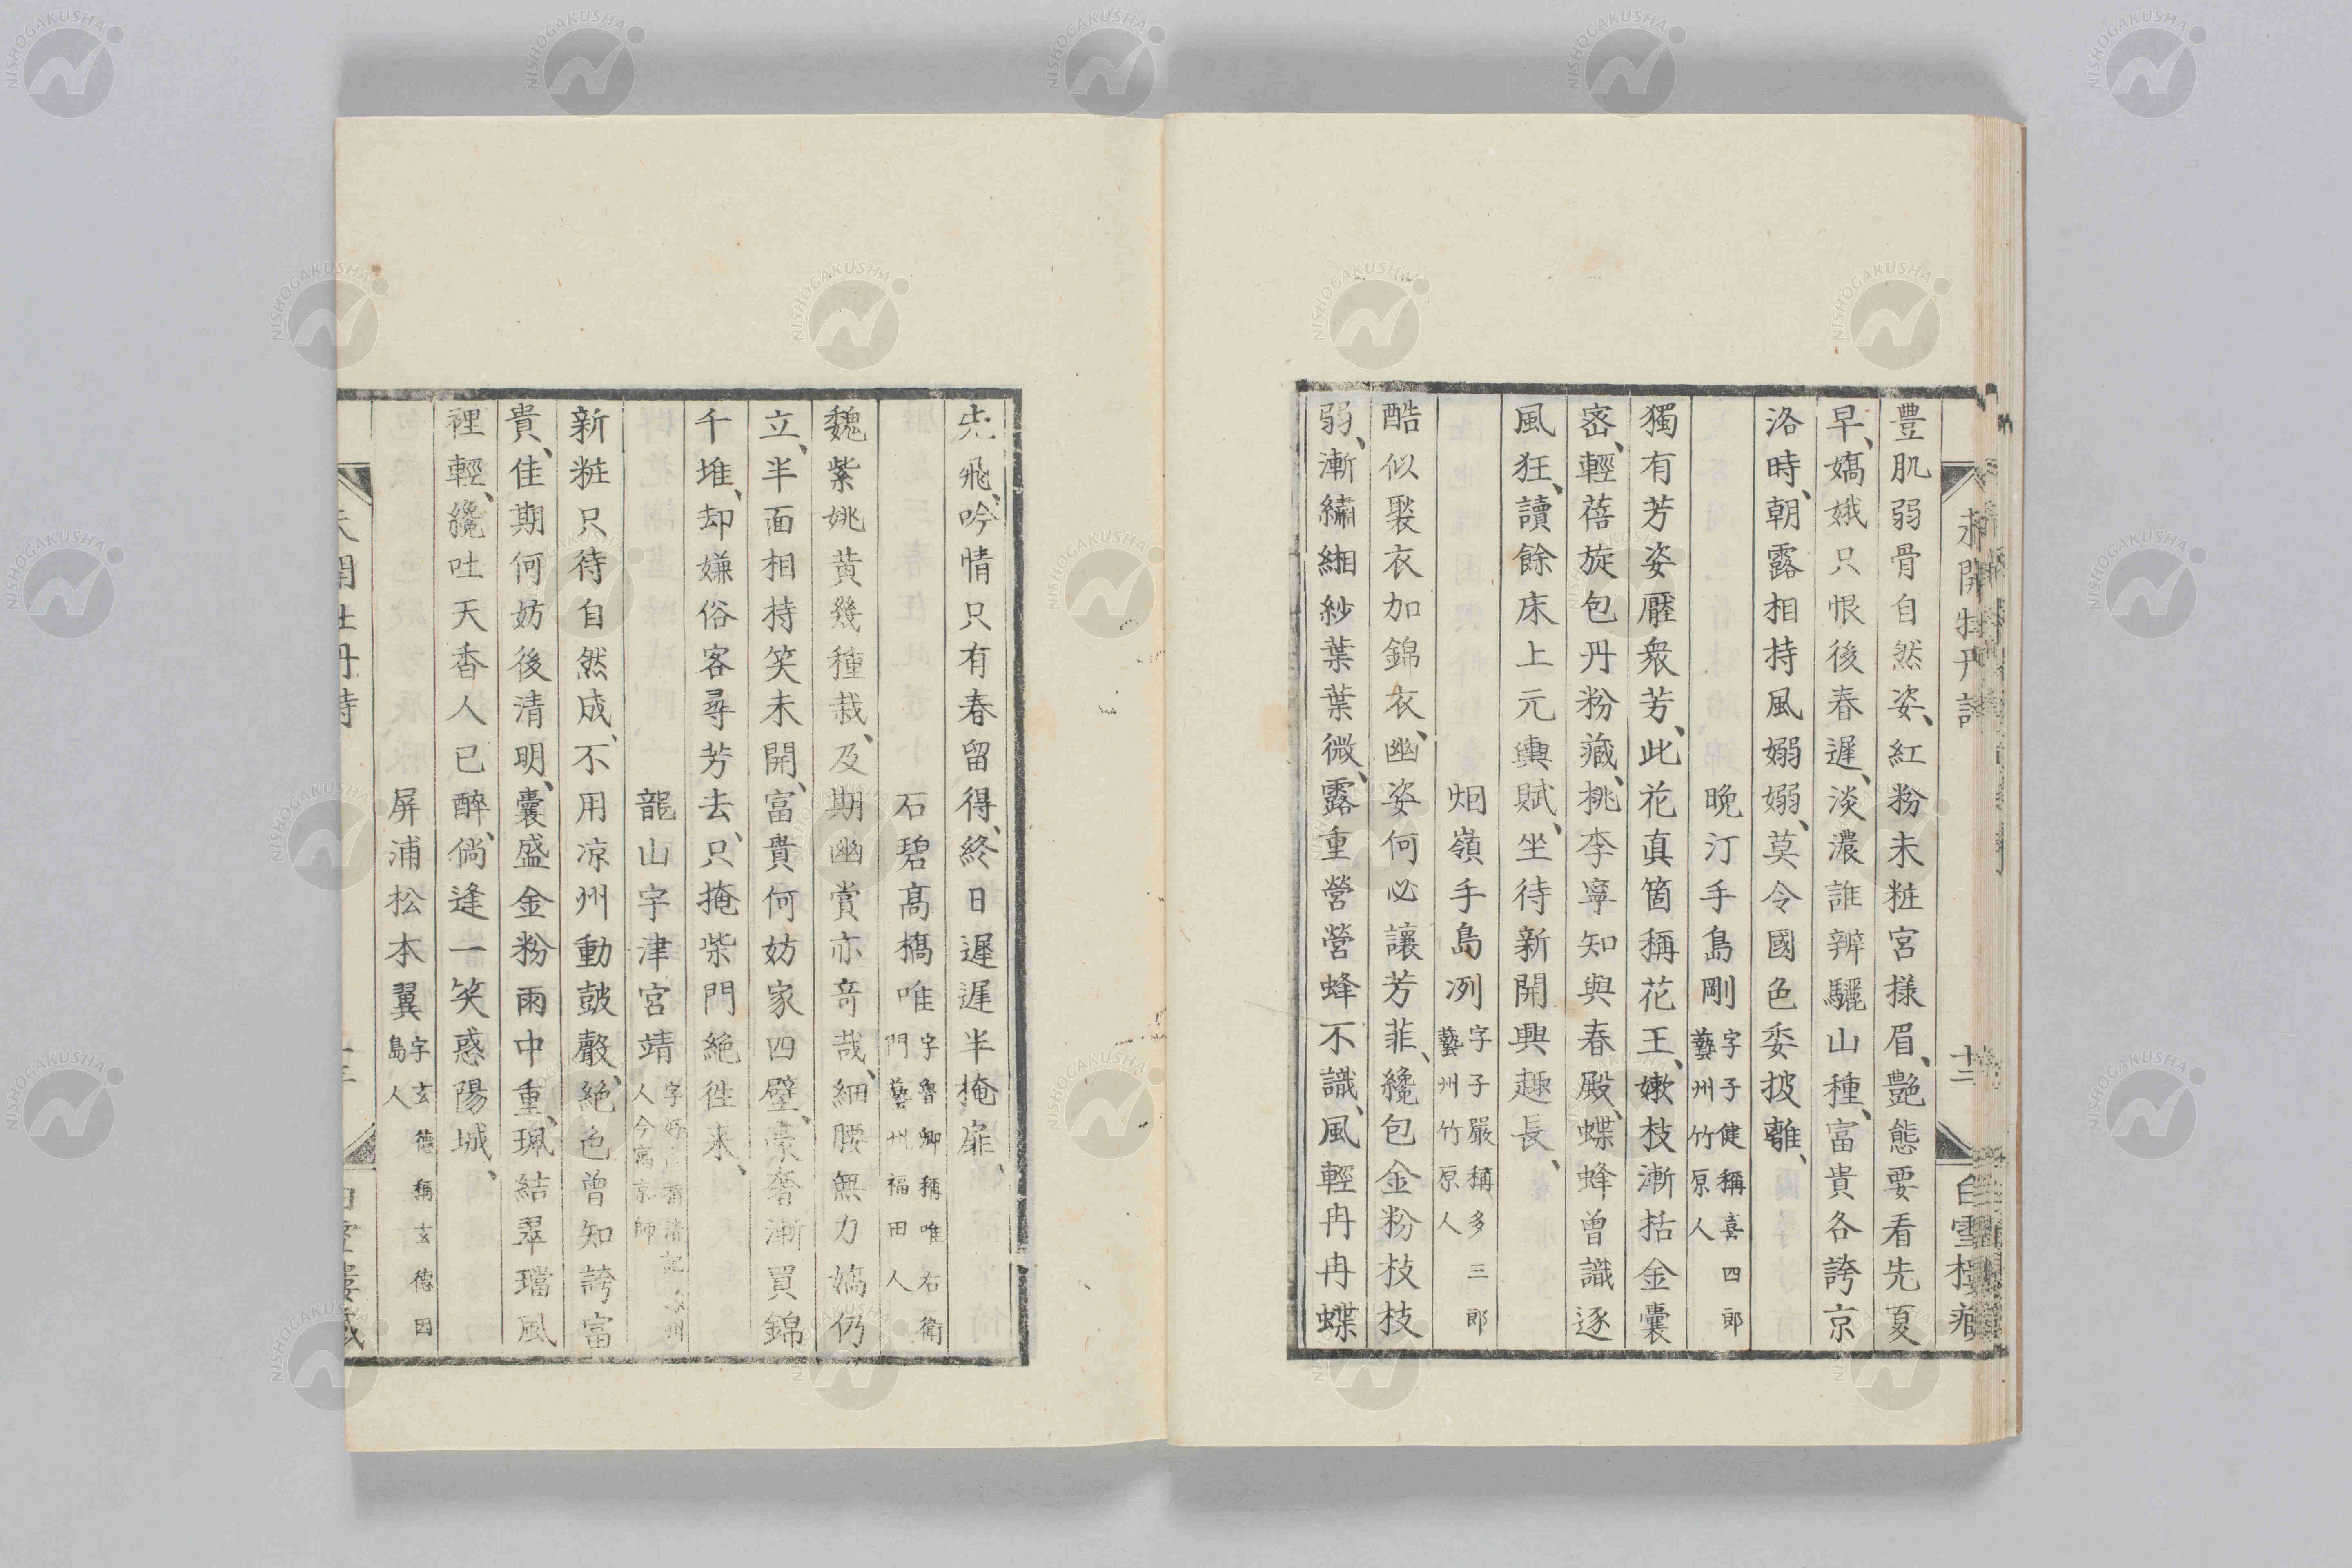 未開牡丹詩 十二 白雪樓藏
豊肌弱骨自然姿、紅粉未粧宮樣眉、艶態要看先夏
早、嬌娥只恨後春遲、淡濃誰辨驪山種、富貴各誇京
洛時、朝露相持風嫋嫋、莫令國色委披離、
晚汀手島剛 字子健稱喜四郎藝州竹原人
獨有芳姿壓衆芳、此花眞箇稱花王、嫩枝漸括金囊
密、輕蓓旋包丹粉藏、桃李寧知與春殿、蝶蜂曾識逐
風狂、讀餘床上元輿賦、坐待新開興趣長、
烟嶺手島冽 字子嚴稱多三郎藝州竹原人
酷似褧衣加錦衣、幽姿何必讓芳菲、纔包金粉枝枝
弱、漸繡緗紗葉葉微、露重營營蜂不識、風輕冉冉蝶
先飛、吟情只有春留得、終日遲遲半掩扉、
石碧高橋唯 字魯卿稱唯右衛門藝州福田人
魏紫姚黃幾種栽、及期幽賞亦奇哉、細腰無力嬌仍
立、半面相持笑未開、富貴何妨家四壁、豪奢漸買錦
千堆、却嫌俗客尋芳去、只掩柴門絕徃来、
龍山宇津宮靖 字 人今寓京師
新粧只待自然成、不用凉州動鼓聲、絕色曾知誇富
貴、佳期何妨後清明、囊盛金粉雨中重、珮結翠璫風
裡輕、纔吐天香人已醉、倘逢一笑惑陽城、
屏浦松本翼 字玄德稱玄德因島人
未開牡丹詩 白雪樓藏
NISHOGAKUSHA